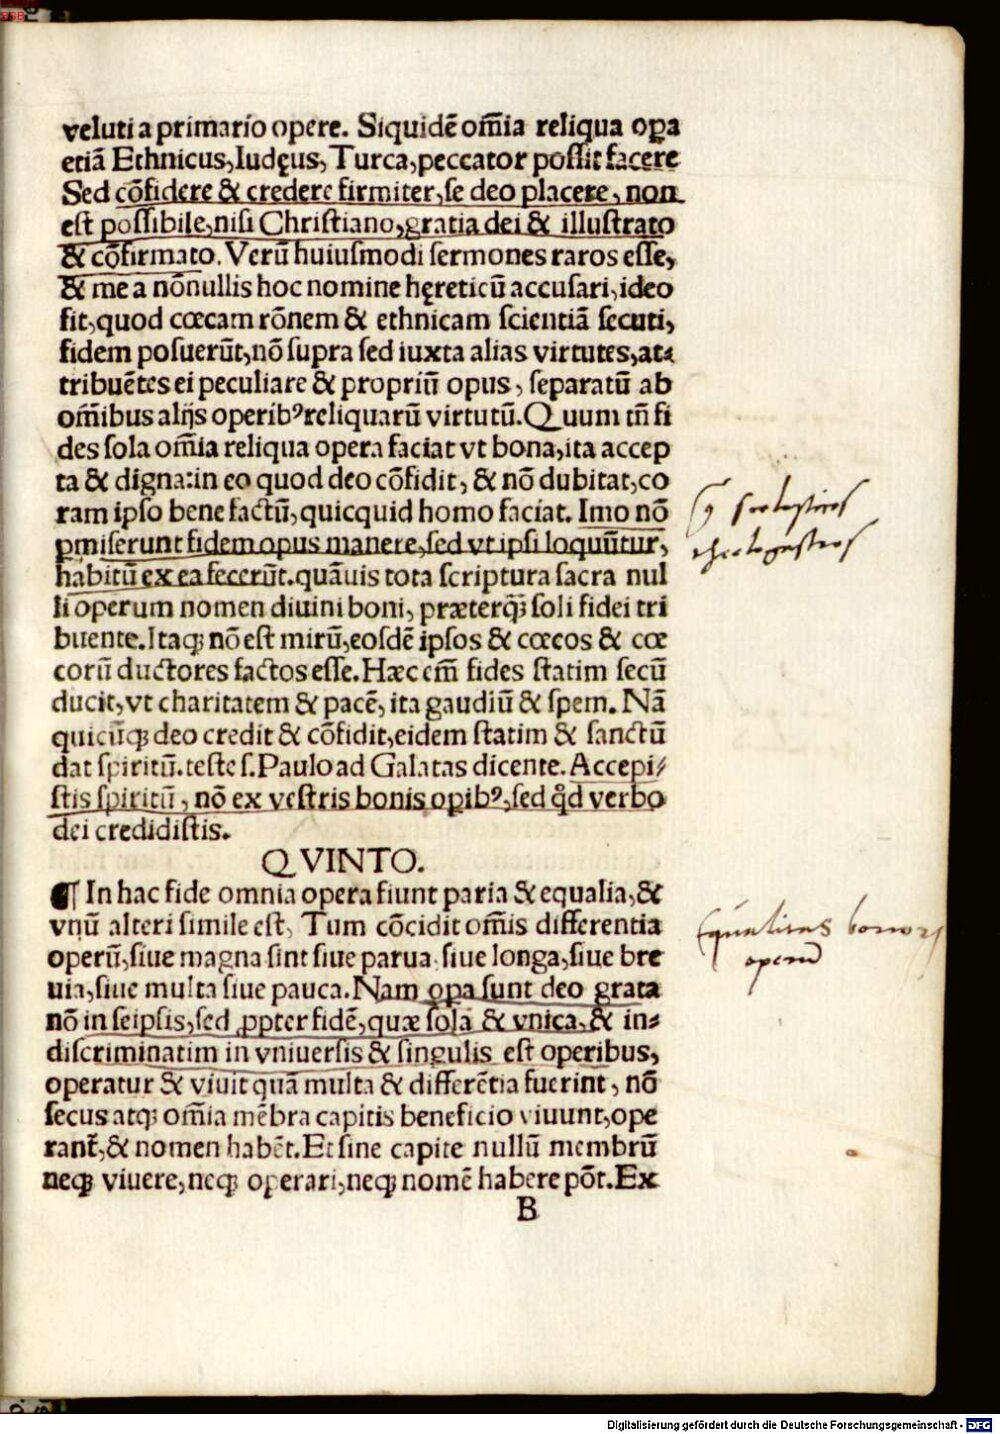 veluti a primario opere. Siquidē om̄ia reliqua oꝑa
etiā Ethnicus, Iudęus, Turca, peccator possit facere
Sed cōfidere & credere firmiter, se deo placere, non
est possibile, nisi Christiano, gratia dei & illustrato
& cōfirmato. Verū huiusmodi sermones raros esse,
& me a nōnullis hoc nomine hęreticū accusari, ideo
fit, quod cœcam rōnem & ethnicam scientiā secuti,
fidem posuerūt, nō supra sed iuxta alias virtutes, at⸗
tribuētes ei peculiare & propriū opus, separatū ab
om̄ibus alijs operibꝰ reliquarū virtutū. Quum tn̄ fi
des sola om̄ia reliqua opera faciat vt bona, ita accep
ta & digna: in eo quod deo cōfidit, & nō dubitat, co
ram ipso bene factū, quicquid homo faciat. Imo nō
ꝑmiserunt fidem opus manere, sed vt ipsi loquūtur,
habitū ex ea fecerūt. quāuis tota scriptura sacra nul
li operum nomen diuini boni, præterq̄ȝ soli fidei tri
buente. Itaqȝ nō est mirū, eosdē ipsos & cœcos & cœ
corū ductores factos esse. Hæc em̄ fides statim secū
ducit, vt charitatem & pacē, ita gaudiū & spem. Nā
quicūqȝ deo credit & cōfidit, eidem statim & sanctū
dat spiritū. teste s. Paulo ad Galatas dicente. Accepi⸗
stis spiritū, nō ex vestris bonis oꝑibꝰ, sed qd̄ verbo
dei credidistis.
QVINTO.
¶ In hac fide omnia opera fiunt paria & equalia, &
vnū alteri simile est, Tum cōcidit om̄is differentia
operū, siue magna sint siue parua. siue longa, siue bre
uia, siue multa siue pauca. Nam oꝑa sunt deo grata
nō in seipsis, sed ꝓpter fidē, quæ sola & vnica, & in⸗
discriminatim in vniuersis & singulis est operibus,
operatur & viuit quā multa & differētia fuerint, nō
secus atqȝ om̄ia mēbra capitis beneficio viuunt, ope
rant̄, & nomen habēt. Et sine capite nullū membrū
neqȝ viuere, neqȝ operari, neqȝ nomē habere pōt. Ex
B
scolasticos
theologastros
Equalitas bonoꝝ
operū
Digitalisierung gefördert durch die Deutsche Forschungsgemeinschaft - DFG